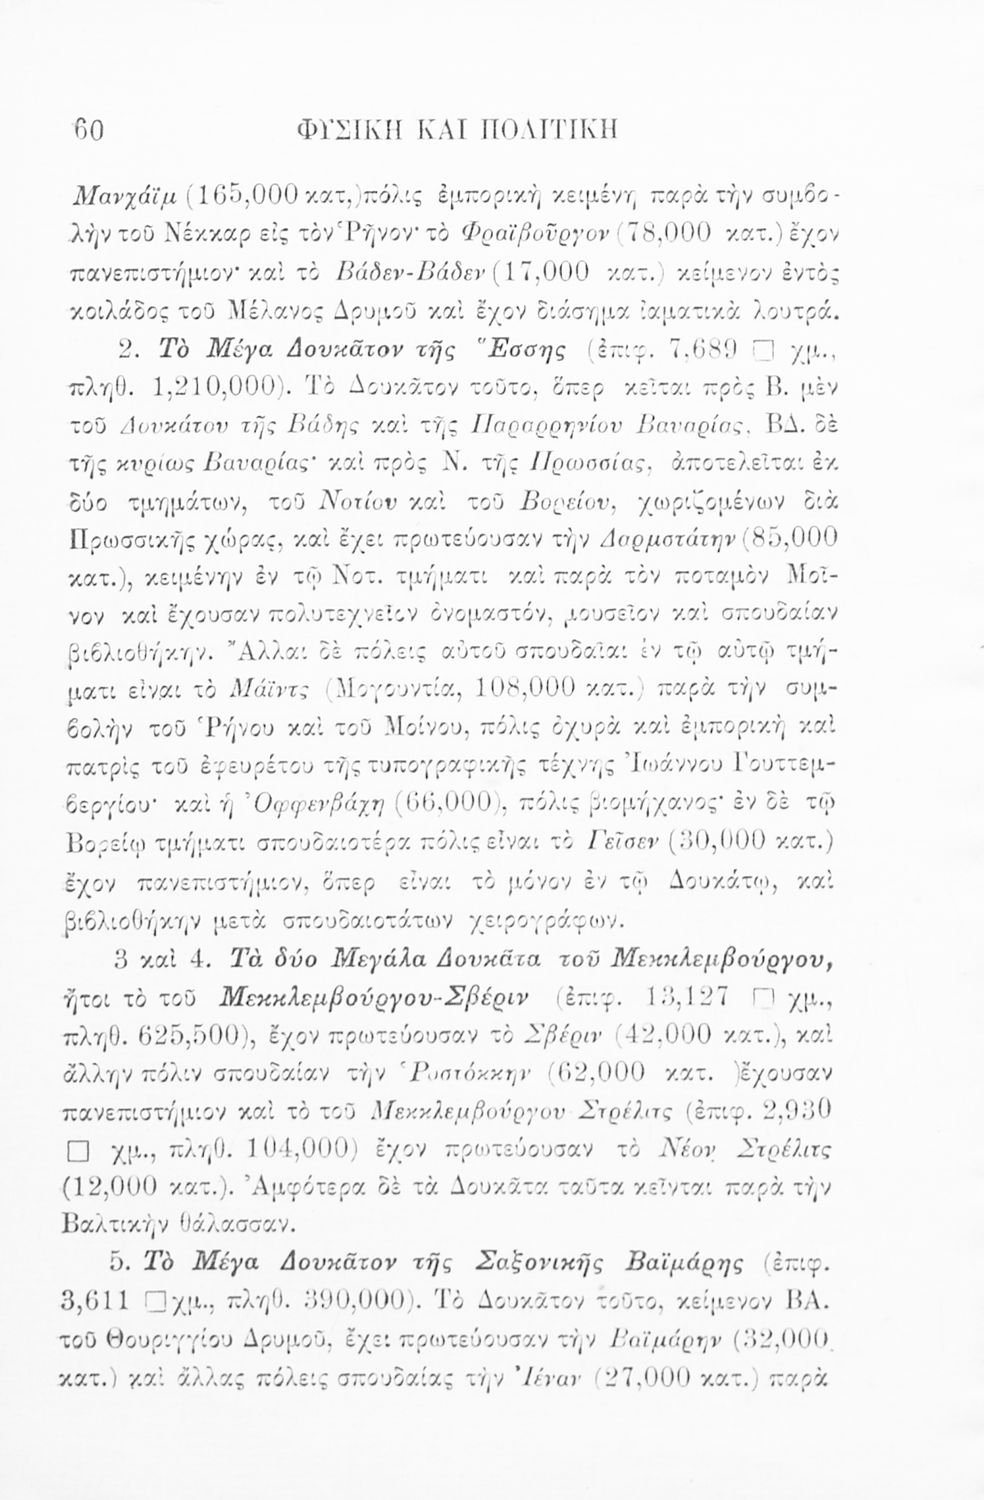 60 ΦΥΣΙΚΗ ΚΑΙ ΠΟΛΙΤΙΚΗ
Μανχάϊμ (165,000 κατ,)πόλις ἐμπορικὴ κειμένη παρὰ τὴν συμβο-
λὴν τοῦ Νέκκαρ εἰς τὸν Ῥῆνον· τὸ Φραϊβοῦργον (78,000 κατ.) ἔχον
πανεπιστήμιον· καὶ τὸ Βάδεν-Βάδεν (17,000 κατ.) κείμενον ἐντὸς
κοιλάδος τοῦ Μέλανος Δρυμοῦ καὶ ἔχον διάσημα ἰαματικὰ λουτρά.
2. Τὸ Μέγα Δουκᾶτον τῆς Ἔσσης (ἐπιφ. 7,689 □ χμ.,
πληθ. 1,210,000). Τὸ Δουκᾶτον τοῦτο, ὅπερ κεῖται πρὸς Β. μὲν
τοῦ Δουκάτου τῆς Βάδης καὶ τῆς Παραρρηνίου Βαυαρίας, ΒΔ. δὲ
τῆς κυρίως Βαυαρίας· καὶ πρὸς Ν. τῆς Πρωσσίας, ἀποτελεῖται ἐκ
δύο τμημάτων, τοῦ Νοτίου καὶ τοῦ Βορείου, χωριζομένων διὰ
Πρωσσικῆς χώρας, καὶ ἔχει πρωτεύουσαν τὴν Δαρμστάτην (85,000
κατ.), κειμένην ἐν τῷ Νοτ. τμήματι καὶ παρὰ τὸν ποταμὸν Μοῖ-
νον καὶ ἔχουσαν πολυτεχνεῖον ὀνομαστόν, μουσεῖον καὶ σπουδαίαν
βιβλιοθήκην. Ἄλλαι δὲ πόλεις αὐτοῦ σπουδαῖαι ἐν τῷ αὐτῷ τμή-
ματι εἶναι τὸ Μάϊντς (Μογουντία, 108,000 κατ.) παρὰ τὴν συμ-
βολὴν τοῦ Ῥήνου καὶ τοῦ Μοίνου, πόλις ὀχυρὰ καὶ ἐμπορικὴ καὶ
πατρὶς τοῦ ἐφευρέτου τῆς τυπογραφικῆς τέχνης Ἰωάννου Γουττεμ-
βεργίου· καὶ ἡ Ὀφφενβάχη (66,000), πόλις βιομήχανος· ἐν δὲ τῷ
Βορείῳ τμήματι σπουδαιοτέρα πόλις εἶναι τὸ Γεῖσεν (30,000 κατ.)
ἔχον πανεπιστήμιον, ὅπερ εἶναι τὸ μόνον ἐν τῷ Δουκάτῳ, καὶ
βιβλιοθήκην μετὰ σπουδαιοτάτων χειρογράφων.
3 καὶ 4. Τὰ δύο Μεγάλα Δουκᾶτα τοῦ Μεκκλεμβούργου,
ἤτοι τὸ τοῦ Μεκκλεμβούργου-Σβέριν (ἐπιφ. 13,127 □ χμ.,
πληθ. 625,500), ἔχον πρωτεύουσαν τὸ Σβέριν (42,000 κατ.), καὶ
ἄλλην πόλιν σπουδαίαν τὴν Ῥοστόκκην (62,000 κατ. )ἔχουσαν
πανεπιστήμιον καὶ τὸ τοῦ Μεκκλεμβούργου Στρέλιτς (ἐπιφ. 2,930
□ χμ., πληθ. 104,000) ἔχον πρωτεύουσαν τὸ Νέον Στρέλιτς
(12,000 κατ.). Ἀμφότερα δὲ τὰ Δουκᾶτα ταῦτα κεῖνται παρὰ τὴν
Βαλτικὴν θάλασσαν.
5. Τὸ Μέγα Δουκᾶτον τῆς Σαξονικῆς Βαϊμάρης (ἐπιφ.
3,611 □χμ., πληθ. 390,000). Τὸ Δουκᾶτον τοῦτο, κείμενον ΒΑ.
τοῦ Θουριγγίου Δρυμοῦ, ἔχει πρωτεύουσαν τὴν Βαϊμάρην (32,000
κατ.) καὶ ἄλλας πόλεις σπουδαίας τὴν Ἰέναν (27,000 κατ.) παρὰ